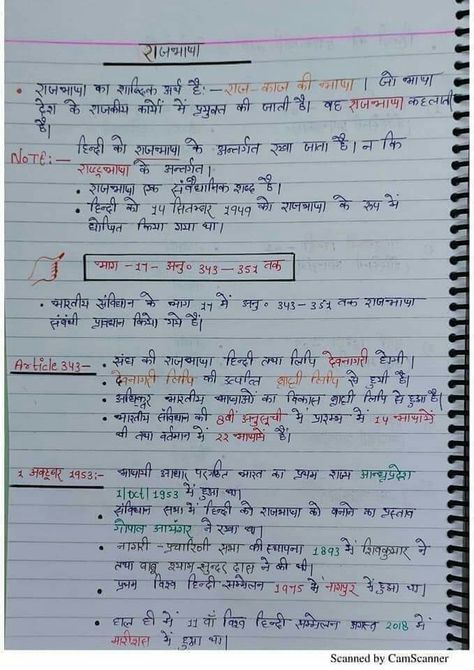 राजभाषा
• राजभाषा का शाब्दिक अर्थ है:- राज-काज की भाषा। जो भाषा
देश के राजकीय कार्यो में प्रयुक्त की जाती है। वह राजभाषा कहलाती
है।
हिन्दी को राजभाषा के अन्तर्गत रखा जाता है। न कि
NOTE:- राष्ट्रभाषा के अन्तर्गत।
• राजभाषा एक संवैधानिक शब्द है।
• हिन्दी को 14 सितम्बर 1949 को राजभाषा के रूप में
घोषित किया गया था।
भाग -17- अनु० 343-351 तक
• भारतीय संविधान के भाग 17 में अनु० 343-351 तक राजभाषा
संबंधी प्रावधान किये गये हैं।
Article 343- • संघ की राजभाषा हिन्दी तथा लिपि देवनागरी होगी।
• देवनागरी लिपि की उत्पत्ति ब्राह्मी लिपि से हुयी है।
• अधिकतर भारतीय भाषाओं का विकास ब्राह्मी लिपि से हुआ है।
• भारतीय संविधान की 8वीं अनुसूची में प्रारम्भ में 14 भाषायें
थी तथा वर्तमान में 22 भाषायें हैं।
1 अक्टूबर 1953:- भाषायी आधार पर गठित भारत का प्रथम राज्य आन्ध्रप्रदेश
1 Oct 1953 में हुआ था।
• संविधान सभा में हिन्दी को राजभाषा को बनाने का प्रस्ताव
गोपाल आयंगर ने रखा था।
• नागरी-प्रचारिणी सभा की स्थापना 1893 में शिवकुमार ने
तथा बाबू श्याम सुन्दर दास ने की थी।
• प्रथम विश्व हिन्दी सम्मेलन 1975 में नागपुर में हुआ था।
• हाल ही में 11 वाँ विश्व हिन्दी सम्मेलन अगस्त 2018 में
मारीशस में हुआ था।
Scanned by CamScanner